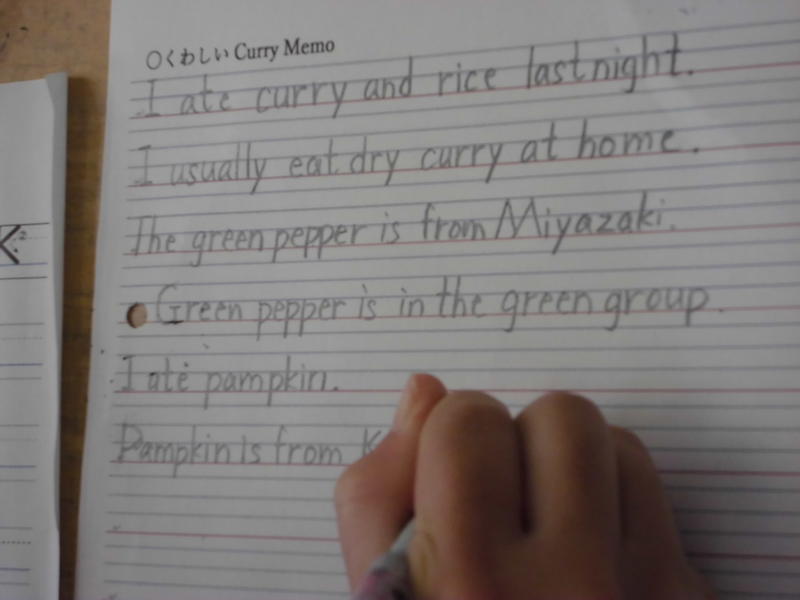 ○くわしい Curry Memo
I ate curry and rice last night.
I usually eat dry curry at home.
The green pepper is from Miyazaki.
Green pepper is in the green group.
I ate pampkin.
Pampkin is from K